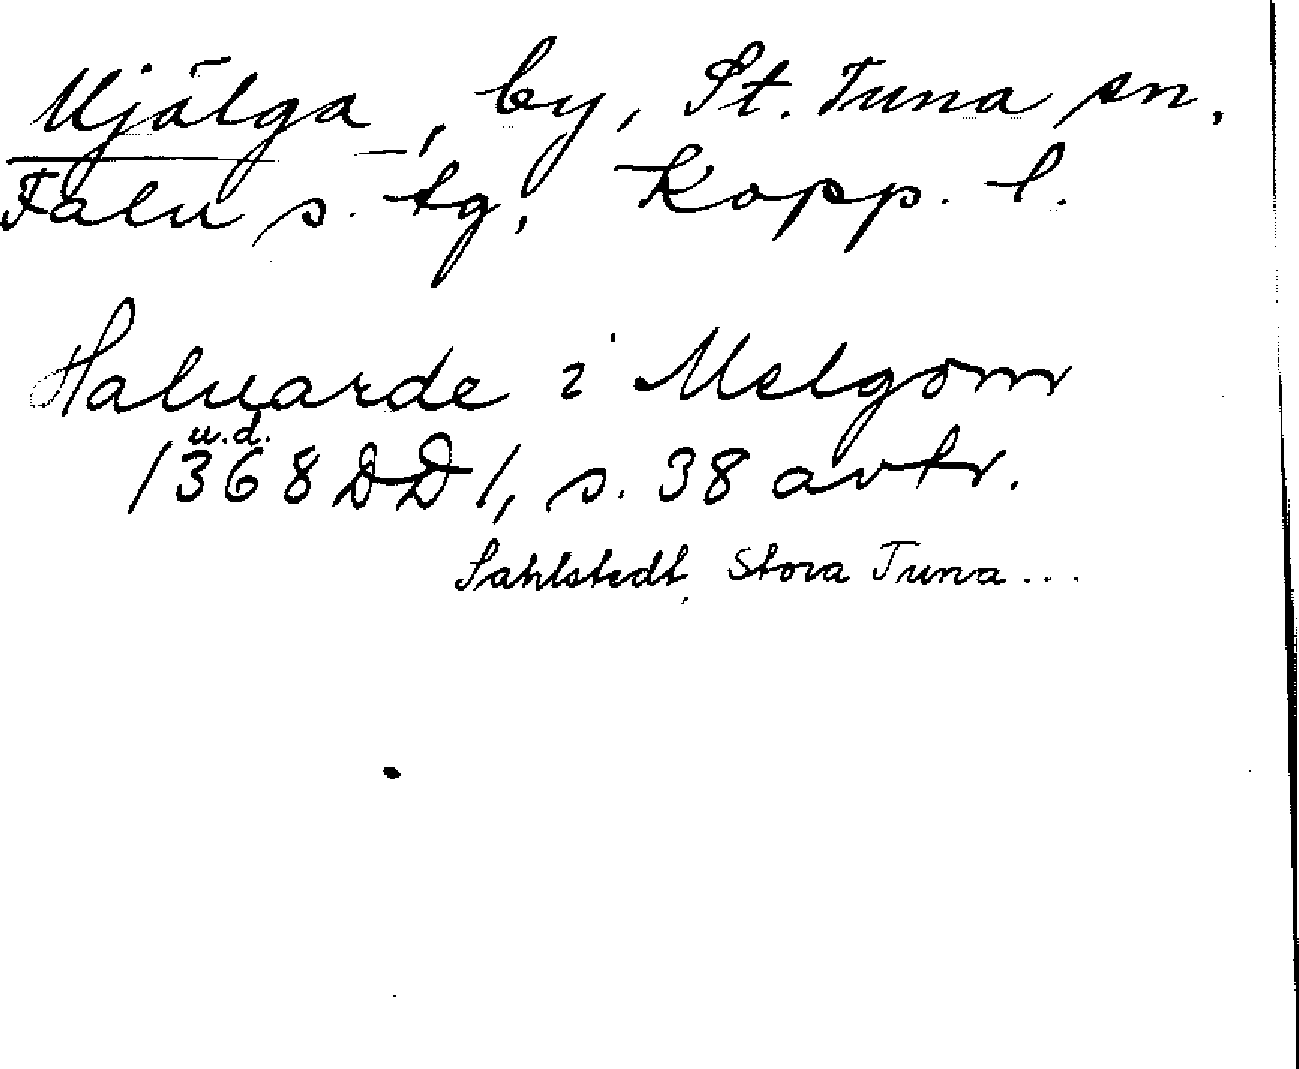 Mjälga, by, St. Tuna sn,
Falu s. tg, Kopp. l.
Haluarde i Melgom
u.d.
1368 DD 1, s. 38 avtr.
Sahlstedt, Stora Tuna...